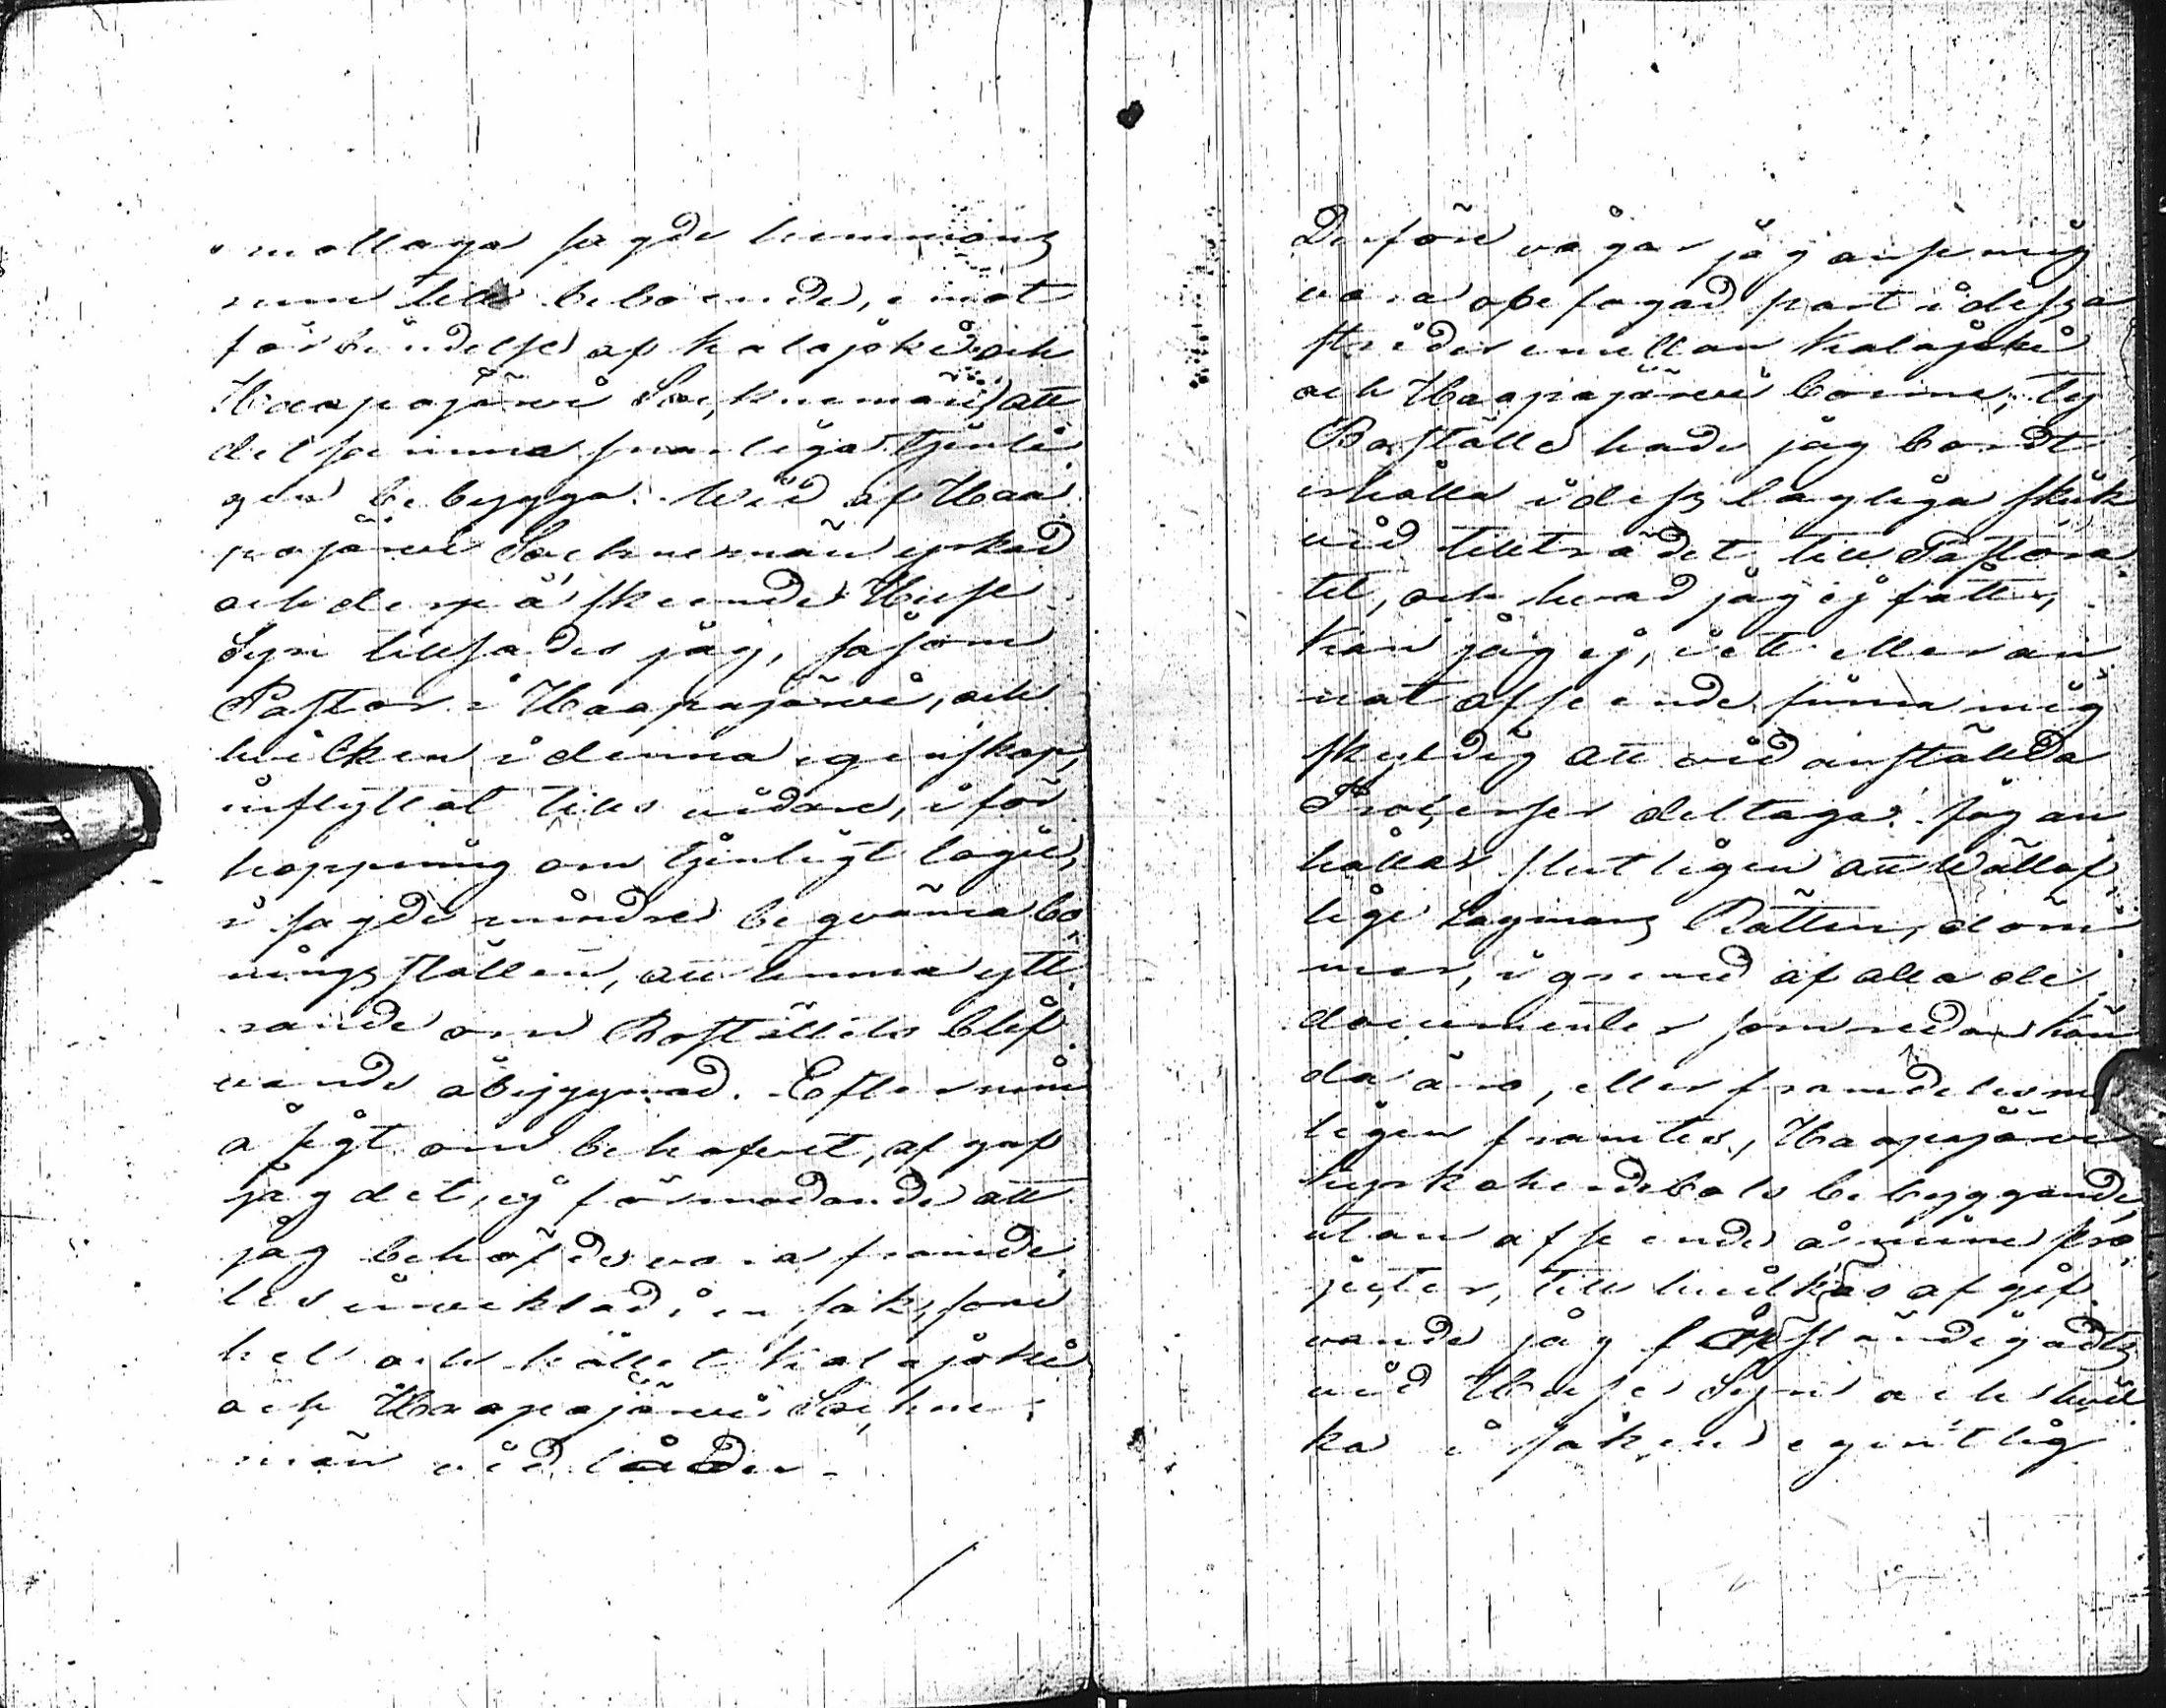 emottaga sagde hemmans
rum till beboende, emot
förbindelse af Kalajoki och
Haapajärvi Socknemän, att
detsamma snarligen tjenli-
gen bebygga. Wid af Haa-
pajärvi Socknemän yrkad
och derpå skeende Huse
Syn tillsades jag, såsom
Pastor i Haapajärvi, och
hvilken i denna egenskap,
inflyttat till vidare, i för-
hoppning om tjenligt logis,
i sagde mindre beqväma bo-
ningsställen, att lemna ytt-
rande om Boställets blif-
vande åbyggnad. Efter min
åsigt om behofvet, afgaf
jag det, ej förmodande att
jag behöfde vara framde-
les invecklad i en sak, som
helt och hållet Kalajoki
och Haapajärvi Sockne-
män vidlåder.
Derföre vågar jag anse mig
vara obefogad part i dessa
strider emellan Kalajoki
och Haapajärvi boerne; ty
Boställe hade jag bordt
erhålla i dess lagliga skick
vid tillträdet till Pastora-
tet, och hvad jag ej fått,
kan jag ej, i ett eller an-
nat afseende finna mig
skyldig att vid anställda
Processer deltaga. Jag an-
håller slutligen att Wällof-
lige Lagmans Rätten, döm-
mer, i grund af alla de
documenter som redan kän-
da äro, eller framdeles
ligen framtes, Haapajärvi
kyrkoherdebols bebyggande,
utan afseende å mina pro-
jecter, till hvilkas afgif-
vande jag
vid Huse Syn och hvil-
ka i saken egentlig